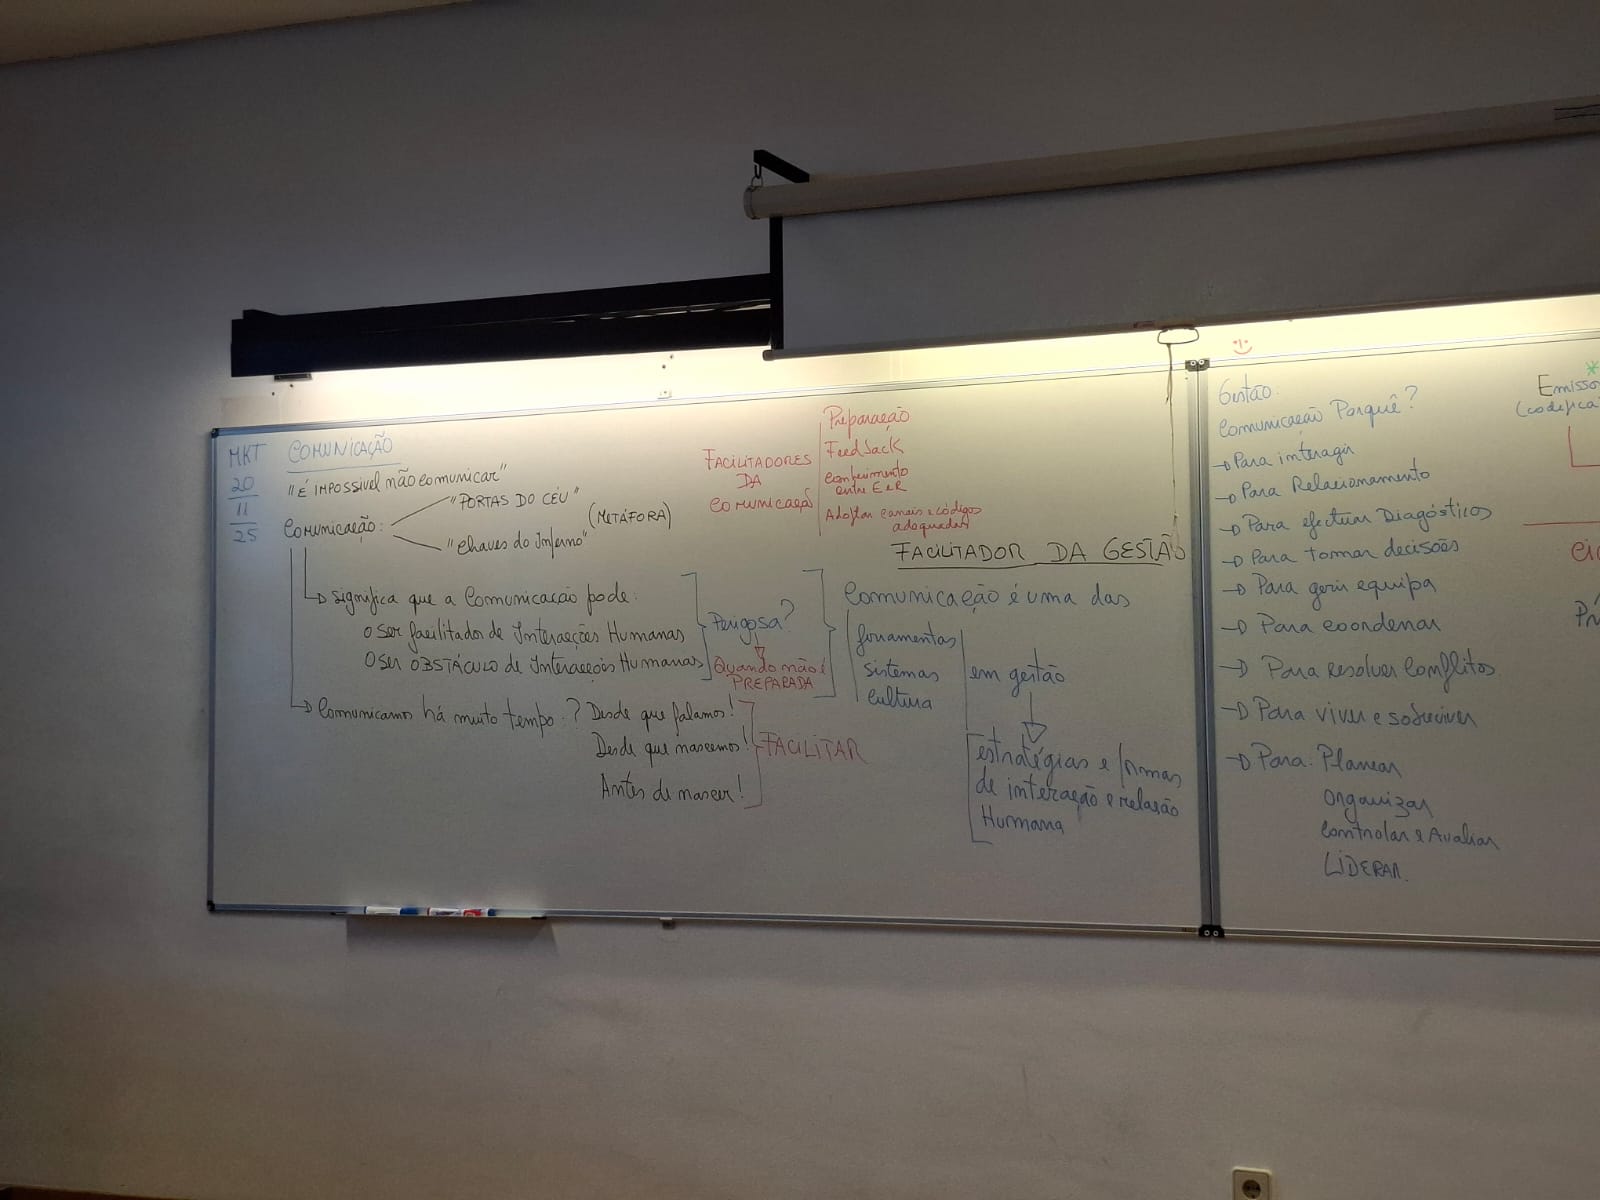 MKT
20
11
25
COMUNICAÇÃO
"É IMPOSSÍVEL não comunicar"
Comunicação:
"PORTAS DO CÉU"
"Chaves do Inferno"
(METÁFORA)
significa que a Comunicação pode:
o ser facilitador de Interacções Humanas
o ser OBSTÁCULO de Interacções Humanas
Perigosa?
Quando não é
PREPARADA
Comunicamos há muito tempo:? Desde que falamos!
Desde que nascemos!
Antes de nascer!
FACILITAR
FACILITADORES
DA
COMUNICAÇÃO
Preparação
Feedback
Conhecimento
entre E e R
Adoptar canais e códigos
adequados
FACILITADOR DA GESTÃO
Comunicação é uma das
ferramentas
sistemas
cultura
em gestão
estratégias e formas
de interação e relação
Humana
Gestão:
Comunicação Porquê?
→ Para interagir
→ Para Relacionamento
→ Para efectuar Diagósticos
→ Para tomar decisões
→ Para gerir equipa
→ Para coordenar
→ Para resolver Conflitos
→ Para viver e sobreviver
→ Para: Planear
Organizar
Controlar e Avaliar
LIDERAR.
Emisso
(codifica